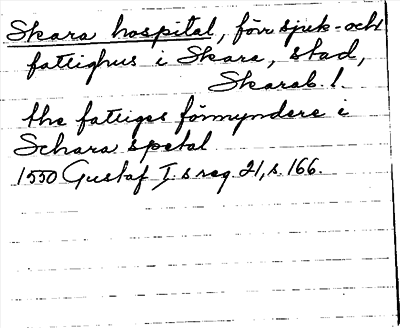 Skara hospital, förr sjuk- och
fattighus i Skara, stad,
Skarab. l.
the fatiges förmyndere i
Schara spetal
1550 Gustaf I:s reg. 21, s. 166.